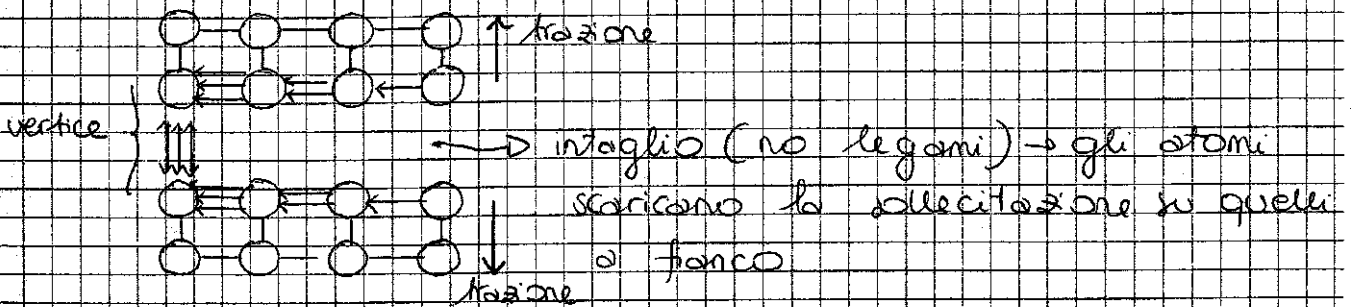 trazione
vertice
intaglio (no legami) → gli atomi
scaricano la sollecitazione su quelli
a fianco
trazione